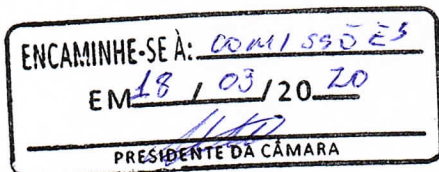 ENCAMINHE-SE À: COMISSÕES
EM 18 / 03 / 20 20
PRESIDENTE DA CÂMARA